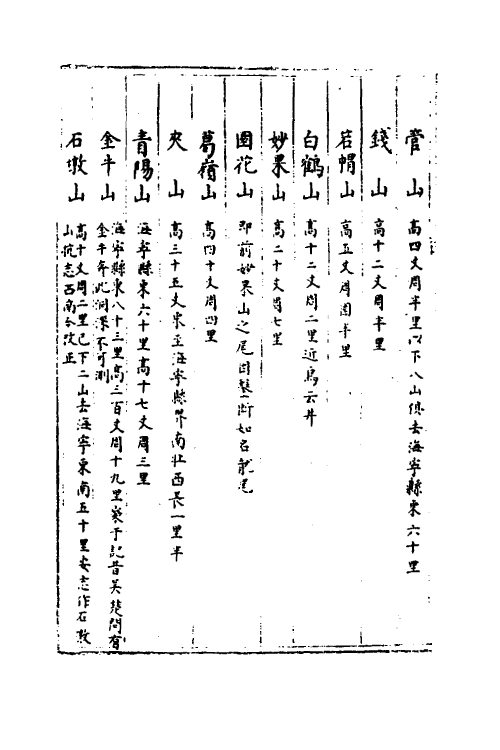 管山 高四丈周半里以下八山俱去海寧縣東六十里
錢山 高十二丈周半里
箬帽山 高五丈周圍半里
白鶴山 高十二丈周二里近烏云井
妙果山 高二十丈周七里
園花山 即前妙果山之尾因鑿斷如名龍尾
葛嶺山 高四十丈周四里
夾山 高三十五丈東至海寧縣界南北西長一里半
青陽山 海寧縣東六十里高十七丈周三里
金牛山 海寧縣東八十三里高三百丈周十九里干記昔吳楚間有
金牛奔此洞深不可測
石墩山 高十丈周二里已下二山去海寧東南五十里安志作石敦
山杭志西南今改正